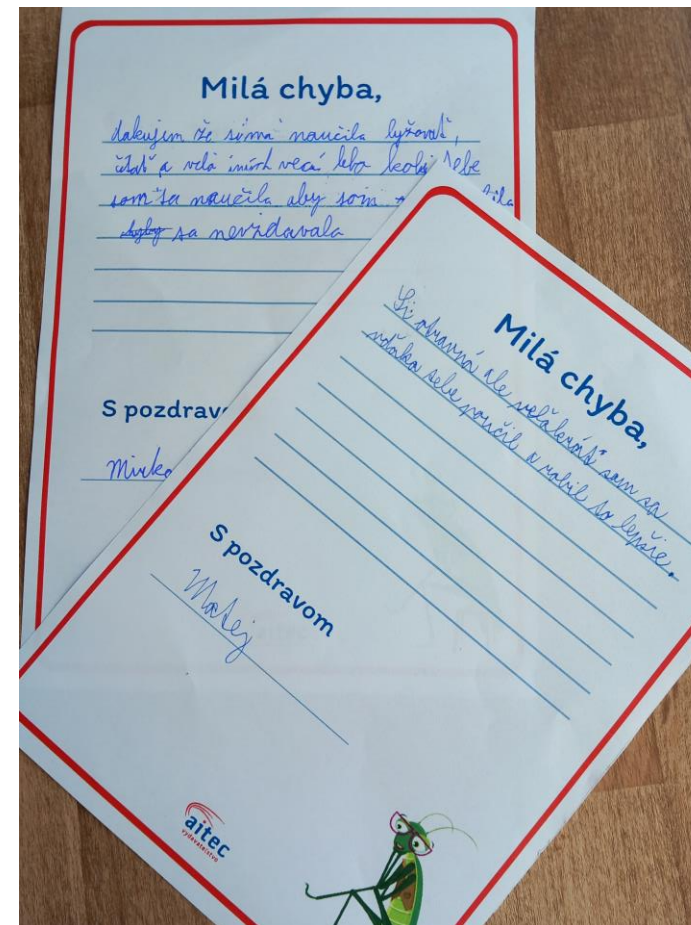 Milá chyba,
ďakujem že sima naučila lyžovať,
čítať a veľa iních vecí lebo
som sa naučila aby som
sa nevzdavala
S pozdrav
Mirko
Milá chyba,
Si otravná ale veľakrát som sa
vďaka tebe poučil a robil to lepšie.
S pozdravom
Matej
aitec
vydavateľstvo